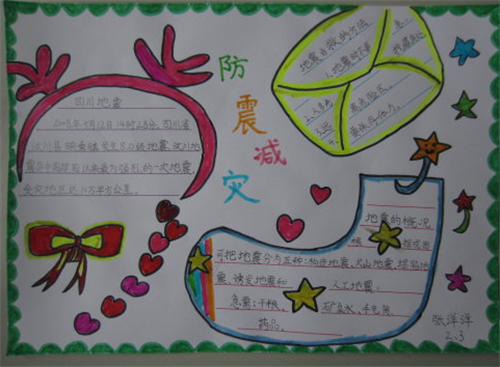 防震减灾
四川地震
2008年5月12日14时28分,四川省
汶川县映秀镇发生8.0级地震,汶川地
震是中国建国以来最为强烈的一次地震,
受灾地区达10万平方公里。
地震自救的方法
1.地震时不要
地震的概况
可把地震分为五种:构造地震、火山地震、塌陷地
震、诱发地震和人工地震。
急需:干粮、矿泉水、手电筒、
药品。
张洋洋
2.3